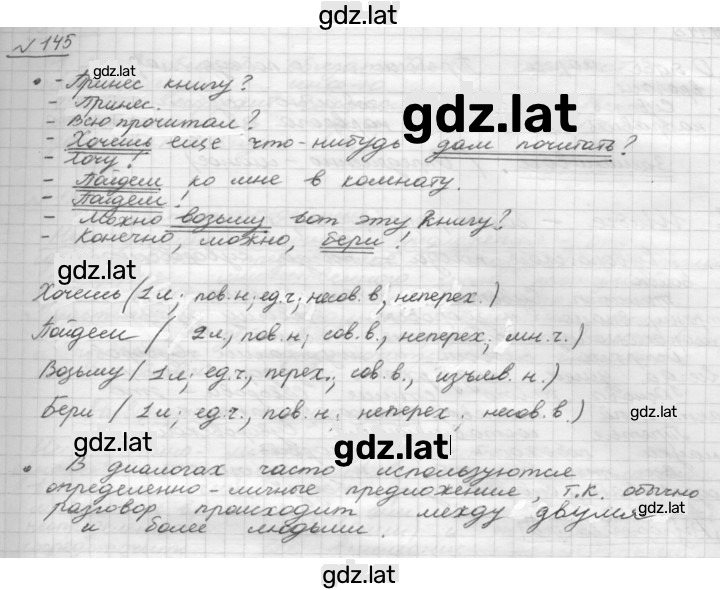 gdz.lat
№ 145
gdz.lat
- Принес книгу?
- Принес.
gdz.lat
- Всю прочитал?
- Хочешь еще что-нибудь дам почитать?
- Хочу!
- Пойдем ко мне в комнату.
- Пойдем!
- Можно возьму вот эту книгу?
- Конечно, можно, бери!
gdz.lat
Хочешь (1 л; пов. н; ед. ч; несов. в, неперех.)
Пойдем ( 2 л., пов. н; сов. в., неперех; мн. ч.)
Возьму (1 л; ед. ч., перех., сов. в., изъяв. н.)
Бери (1 л; ед. ч., пов. н; неперех; несов. в.)
gdz.lat
gdz.lat
gdz.lat
В диалогах часто используются
определенно-личные предложение, т.к. обычно
разговор происходит между двумя
и более людьми.
gdz.lat